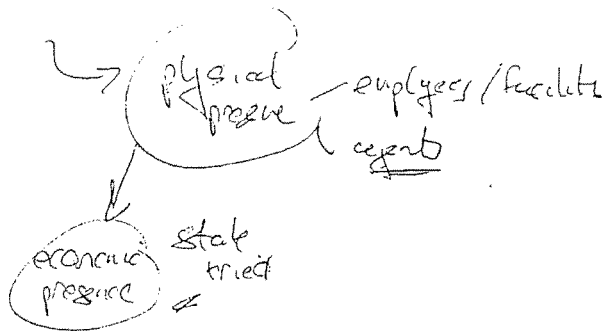 physical
presence
employees / facilities
agents
economic
presence
state
tried